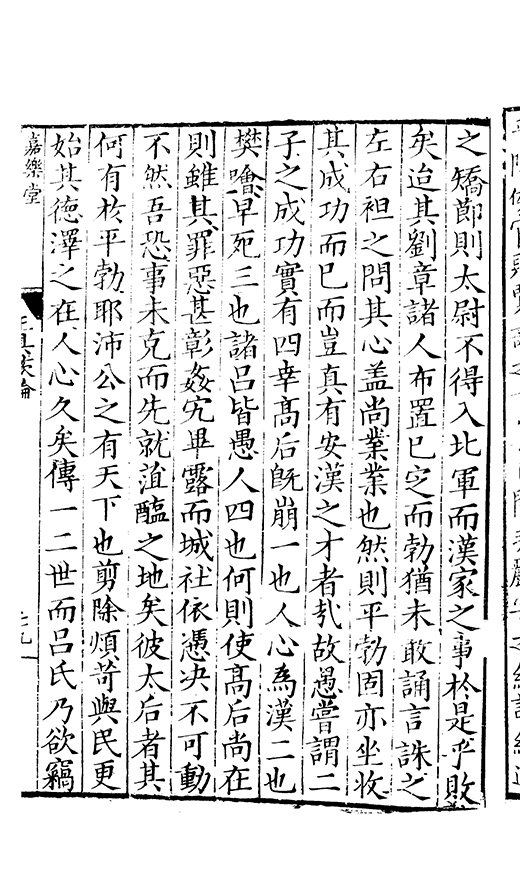 之矯節則太尉不得入北軍而漢家之事於是乎敗
矣迨其劉章諸人布置已定而勃猶未敢誦言誅之
左右袒之問其心盖尚業業也然則平勃固亦坐收
其成功而已而豈真有安漢之才者㢤故愚嘗謂二
子之成功實有四幸髙后旣崩一也人心為漢二也
樊噲早死三也諸吕皆愚人四也何則使髙后尚在
則雖其罪惡甚彰姦宄畢露而城社依憑决不可動
不然吾恐事未克而先就葅醢之地矣彼太后者其
何有於平勃耶沛公之有天下也剪除煩苛與民更
始其德澤之在人心久矣傳一二世而吕氏乃欲竊
嘉樂堂